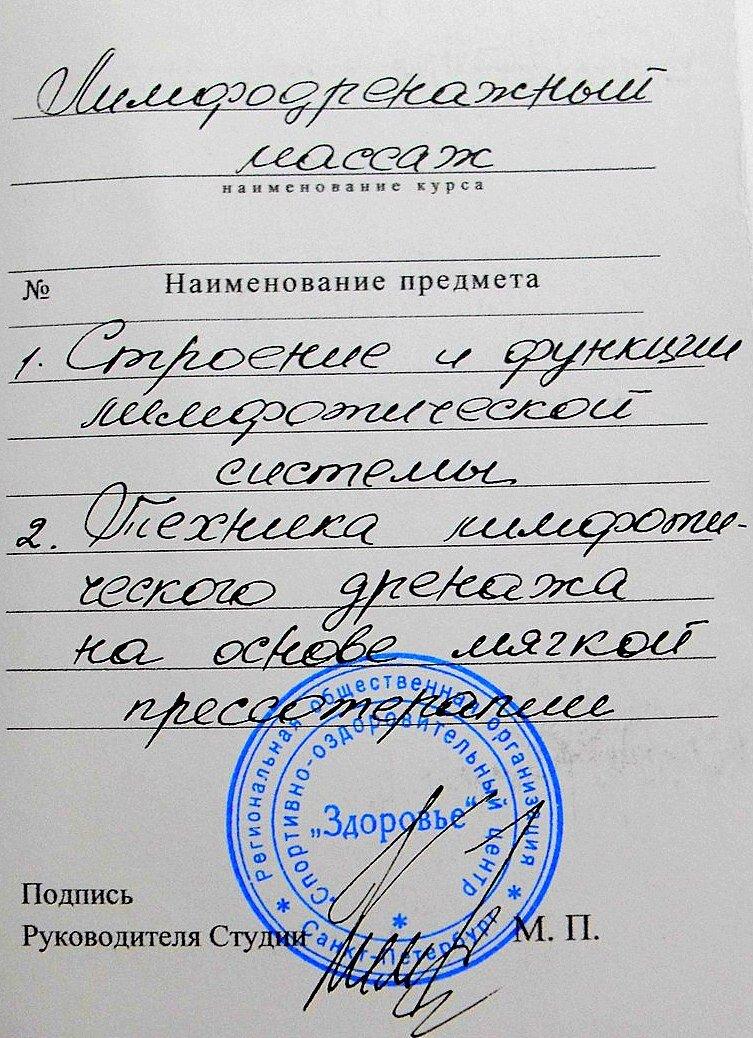 Лимфодренажный
массаж
наименование курса
№ Наименование предмета
1. Строение и функции
лимфотической
системы
2. Техника лимфоти-
ческого дренажа
на основе мягкой
прессотерапии
Региональная общественная организация
Спортивно-оздоровительный центр
„Здоровье“
* Санкт-Петербург *
Подпись
Руководителя Студии М. П.